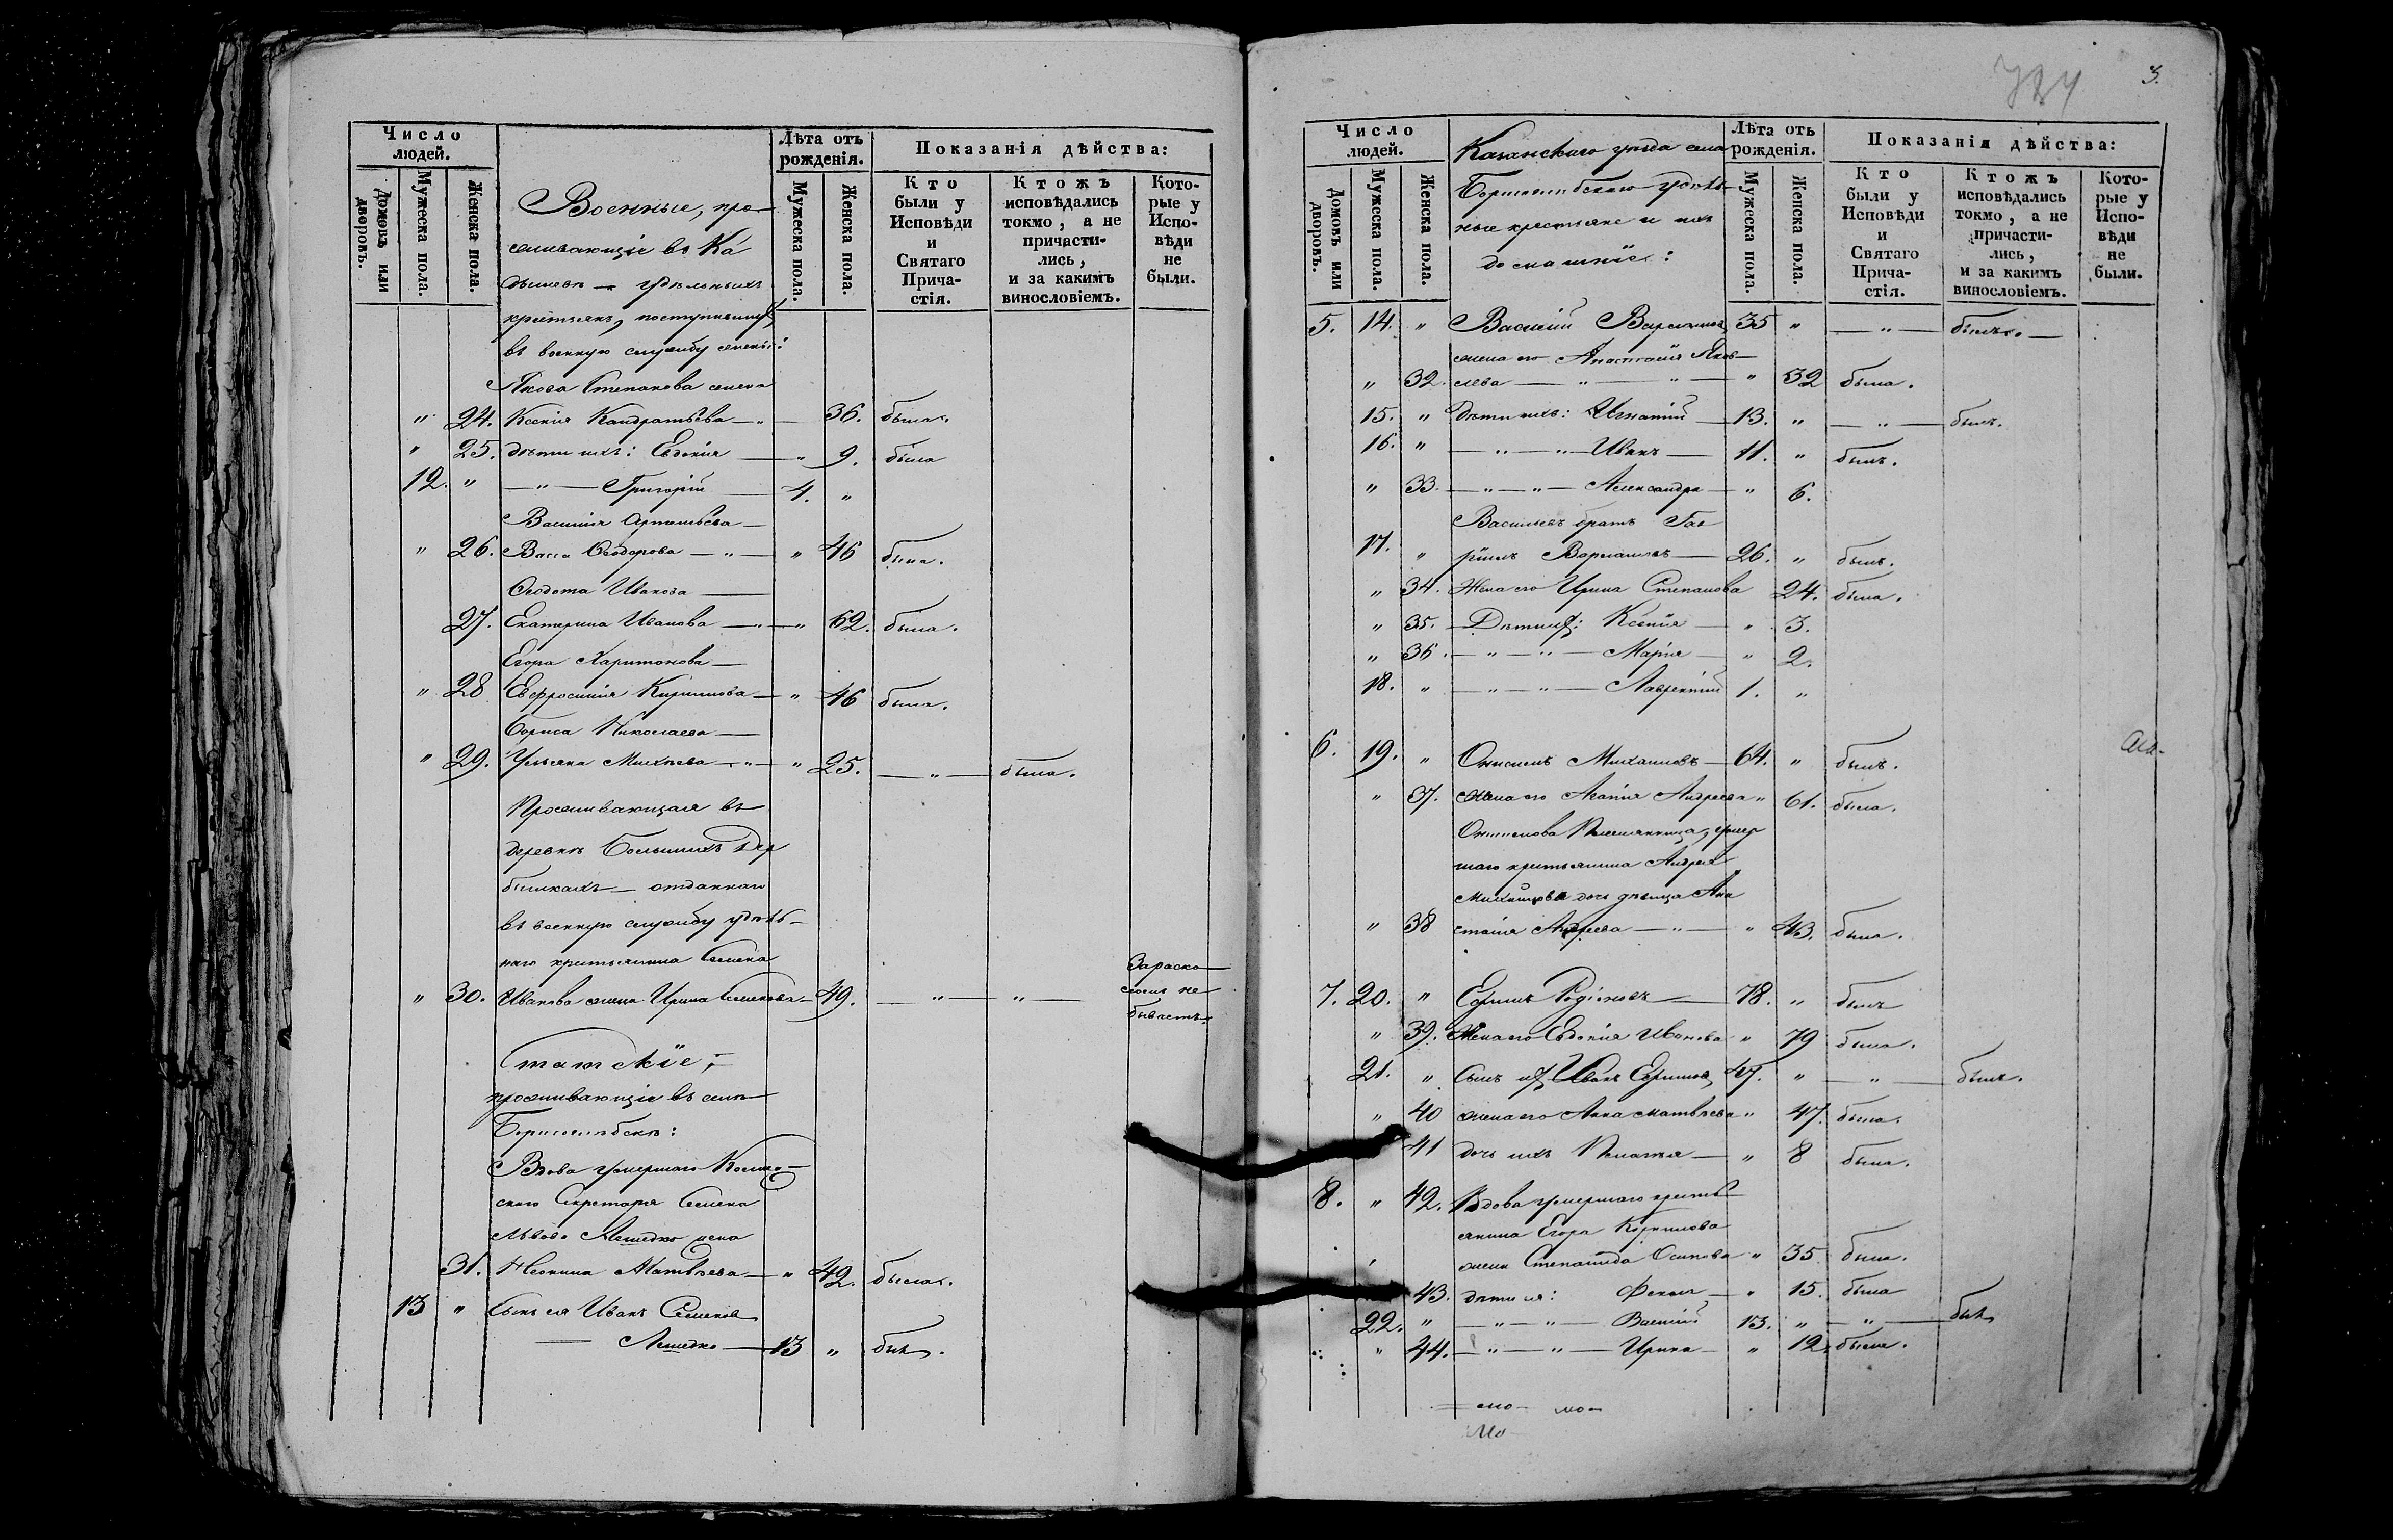 Число людей.
Домовъ или дворовъ.
Мужеска пола.
Женска пола.
Лѣта отъ рожденія.
Мужеска пола.
Женска пола.
Показанія дѣйства:
Кто были у Исповѣди и Святаго Причастія.
Ктожъ исповѣдались токмо, а не причастились, и за какимъ винословіемъ.
Которые у Исповѣди не были.
Военные, про-
живающіе въ Ка
дышевѣ — удѣльныхъ
крестьянъ, поступившихъ
въ военную службу жены:
Якова Степанова жена
" 24. Ксенія Кандратьева — " — 36. была.
" 25. дѣти ихъ: Евдокія — " 9. была
12. " — " — Григорій — 4. "
Василія Артемьева —
" 26. Васса Ѳеодорова — " — " 46 была.
Ѳеодота Иванова —
27. Екатерина Иванова — " — " 62. была.
Егора Харитонова —
" 28 Евфросинія Кирилова — " 46 была.
Бориса Николаева —
" 29. Ульяна Михѣева — " — " 25. — " — была.
Проживающая въ
деревнѣ Большихъ Дер
бышкахъ — отданнаго
въ военную службу удѣль-
наго крестьянина Семена
" 30. Иванова жена Ирина Семенова — 49. — " — " —
За раско
ломъ не
бываетъ.
Статскіе,
проживающіе въ селѣ
Борисоглѣбскѣ:
Вдова умершаго
скаго Секретаря Семена
Львова жена
31. Матвѣева — " 42. была.
13 " Сынъ ея Иванъ Семеновъ
— 13 " былъ.
3.
Число людей.
Домовъ или дворовъ.
Мужеска пола.
Женска пола.
Казанскаго уѣзда села
Борисоглѣбскаго удѣль-
ные крестьяне и ихъ
домашніе:
Лѣта отъ рожденія.
Мужеска пола.
Женска пола.
Показанія дѣйства:
Кто были у Исповѣди и Святаго Причастія.
Ктожъ исповѣдались токмо, а не причастились, и за какимъ винословіемъ.
Которые у Исповѣди не были.
5. 14. " Василій Варламовъ 35 " — " — былъ. —
жена его Анастасія Яков-
" 32. лева — " — " — " 32 была.
15. " Дѣти ихъ: Игнатій — 13. " — " — былъ.
16. " — " — " — Иванъ — 11. " былъ.
" 33. — " — " — Александра — " 6.
Васильевъ братъ Гав
17. " ріилъ Варламовъ — 26. " былъ.
" 34. Жена его Ирина Степанова 24. была.
" 35. Дѣти ихъ: Ксенія — " 3.
" 36. — " — " — Марія — " 2.
18. " — " — " — Лаврентій 1. "
6. 19. " Онисимъ Михаиловъ — 64. " былъ.
" 37. Жена его Агафія Андреева " 61. была.
Онисимова племянница, умер
шаго крестьянина Андрея
Михаилова дочь дѣвица Ана
" 38 стасія Андреева — " — " 43. была.
7. 20. " Ефимъ Родіоновъ — 78. " былъ
" 39. Жена его Евдокія Иванова " 79 была.
21. " Сынъ ихъ Иванъ Ефимовъ 47. " — " — былъ.
" 40 жена его Анна Матвѣева " 47. была.
41 дочь ихъ Пелагея — " 8 была.
8. " 42. Вдова умершаго кресть
янина Егора Корнилова
жена Степанида Осипова " 35 была.
43. дѣти ея: Фекла — " 15. была
22. " — " — " — Василій 13. " — " — былъ
" 44. — " — " — Ирина — " 12. была.